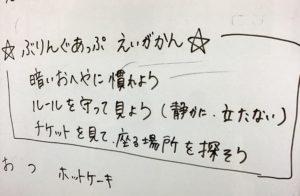 ☆ ぶりんぐあっぷ えいがかん ☆
暗いおへやに慣れよう
ルールを守って見よう(静かに、立たない)
チケットを見て、座る場所を探そう
おつ ホットケーキ